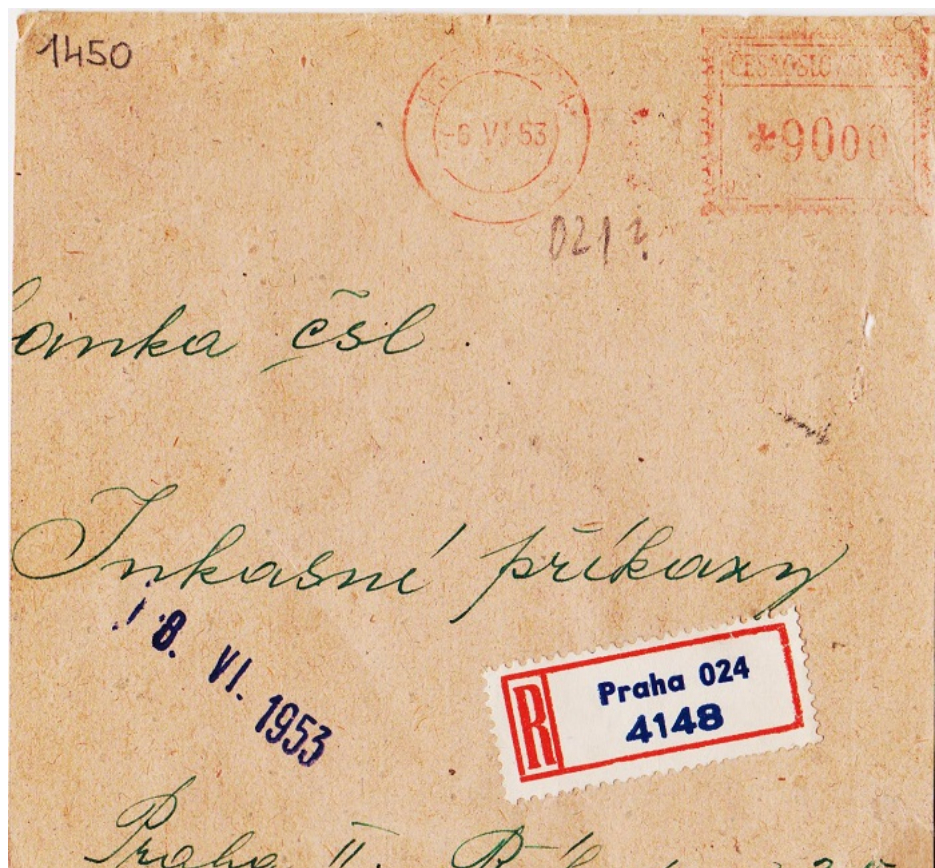 1450
-6 VI 53
ČESKOSLOVENSKO
*9000
021
banka čsl.
Inkasní příkazy
8. VI. 1953
R
Praha 024
4148
Praha II.